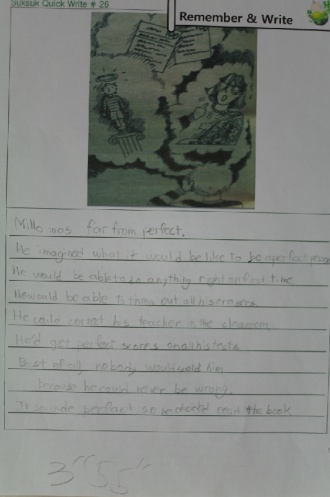 Suksuk Quick Write # 26
Remember & Write
Milo was far from perfect.
He imagined what it would be like to be a perfect person
He would be able to do anything right on first time
He would be able to throw out all his erasers
He could correct his teacher in the classroom
He'd get perfect scores on all his tests
Best of all nobody would scold him
because he could never be wrong.
perfect so he decided read the book
3"55"